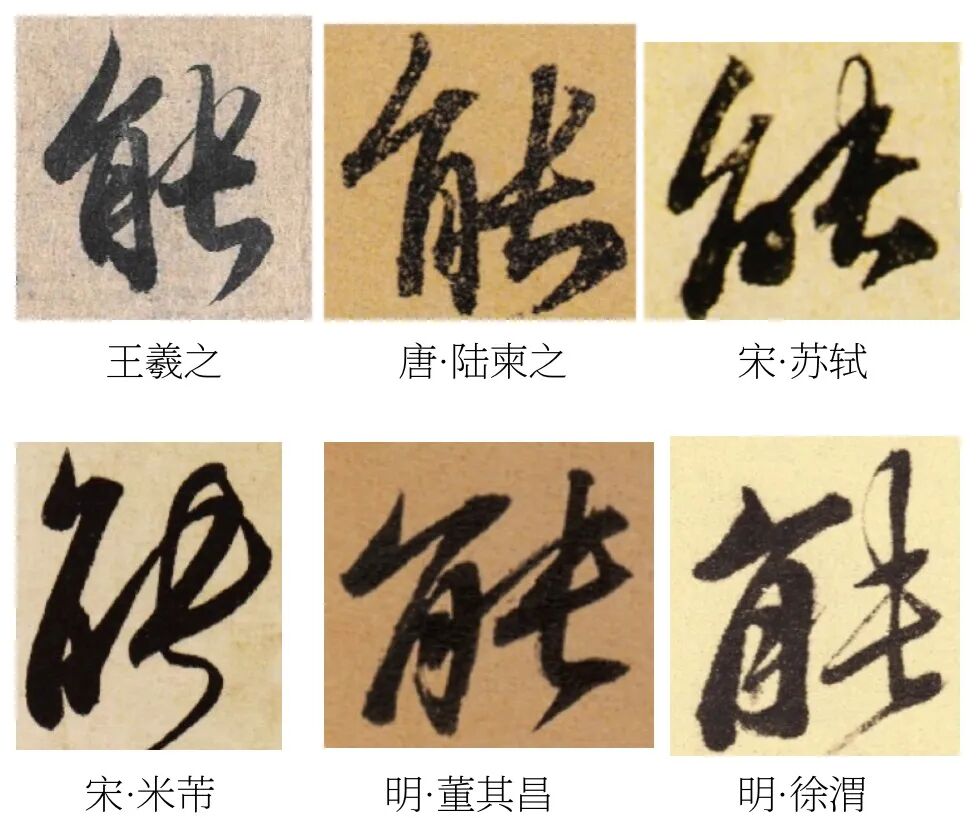 能 能 能
王羲之 唐·陆柬之 宋·苏轼
能 能 能
宋·米芾 明·董其昌 明·徐渭